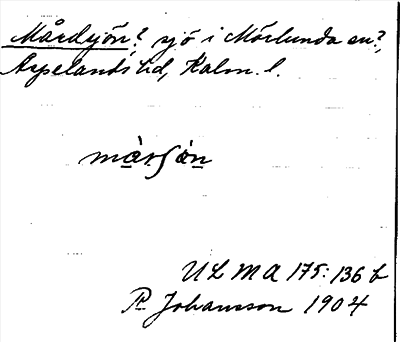 Mårdsjön? sjö i Mörlunda sn?,
Aspelands hd, Kalm. l.
màrʃøn
ULMA 175:136 b
P Johansson 1904